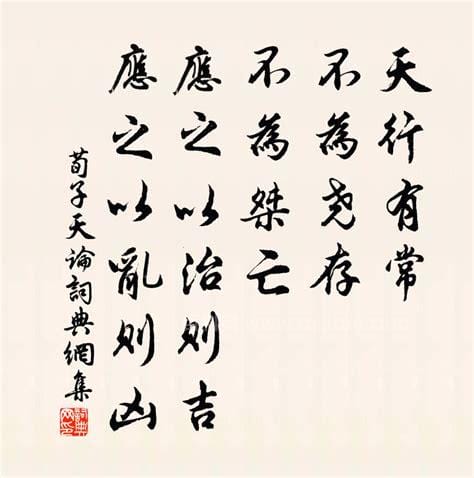 天行有常
不為堯存
不為桀亡
應之以治則吉
應之以亂則凶
荀子天論詞典網集